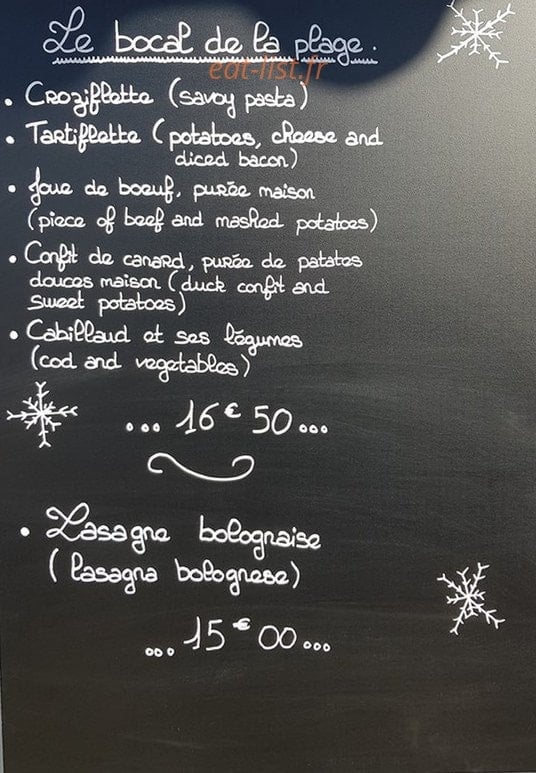 Le bocal de la plage.
eat-list.fr
• Croziflette (savoy pasta)
• Tartiflette (potatoes, cheese and
diced bacon)
• Joue de boeuf, purée maison
(piece of beef and mashed potatoes)
• Confit de canard, purée de patates
douces maison (duck confit and
sweet potatoes)
• Cabillaud et ses légumes
(cod and vegetables)
... 16€50...
• Lasagne bolognaise
(lasagna bolognese)
...15€00...